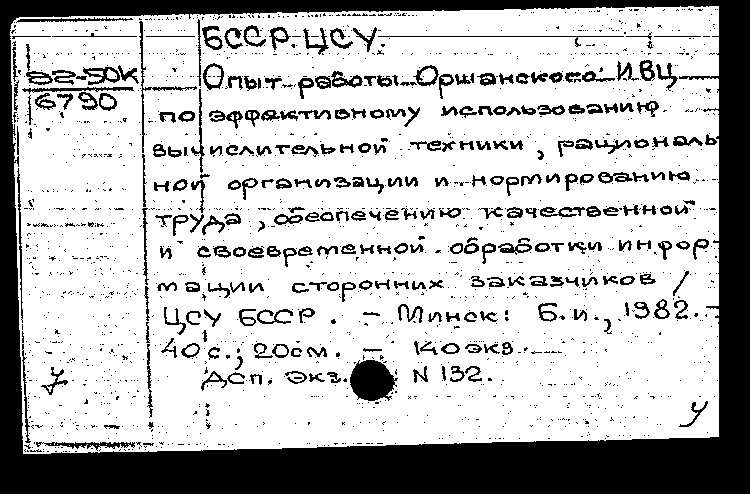 БССР. ЦСУ.
82-50К
6790
Опыт работы Оршанского ИВЦ
по эффективному использованию
вычислительной техники, рациональ-
ной организации и нормированию
труда, обеспечению качественной
и своевременной обработки инфор-
мации сторонних заказчиков /
ЦСУ БССР. – Минск: Б.и., 1982. –
40 с.; 20 см. – 140 экз.
Дсп. Экз. N 132.
У